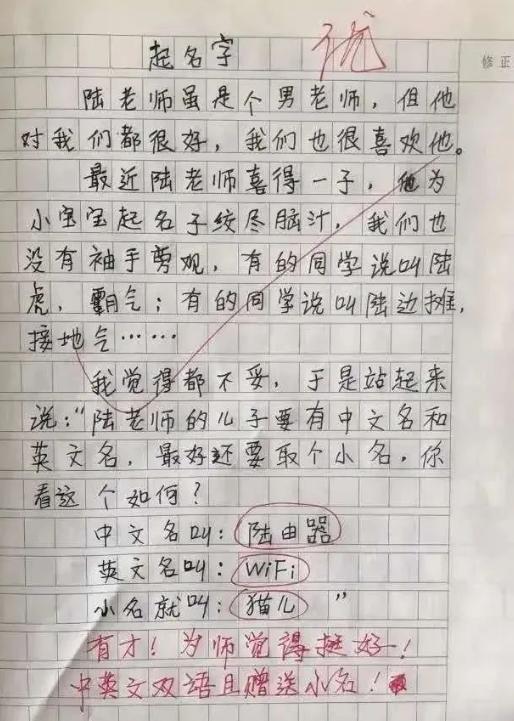 起名字
优
修正
陆老师虽是个男老师，但他
对我们都很好，我们也很喜欢他。
最近陆老师喜得一子，他为
小宝宝起名子绞尽脑汁，我们也
没有袖手旁观，有的同学说叫陆
虎，霸气；有的同学说叫陆边摊，
接地气……
我觉得都不妥，于是站起来
说：“陆老师的儿子要有中文名和
英文名，最好还要取个小名，你
看这个如何？
中文名叫：陆由器
英文名叫：WiFi
小名就叫：猫儿”
有才！为师觉得挺好！
中英文双语且赠送小名！